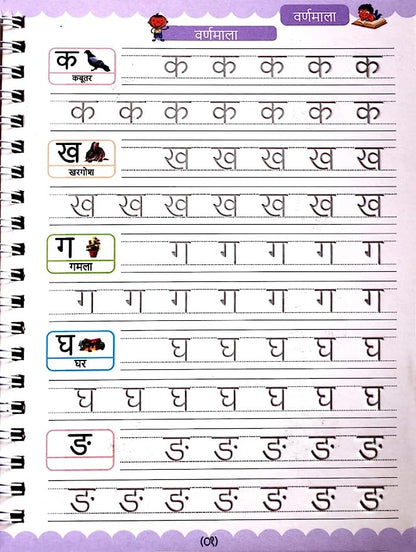 वर्णमाला
वर्णमाला
क
कबूतर
क क क क क
क क क क क क क
ख
खरगोश
ख ख ख ख ख
ख ख ख ख ख ख ख
ग
गमला
ग ग ग ग ग
ग ग ग ग ग ग ग
घ
घर
घ घ घ घ घ
घ घ घ घ घ घ घ
ङ
ङ ङ ङ ङ ङ
ङ ङ ङ ङ ङ ङ ङ
(०१)